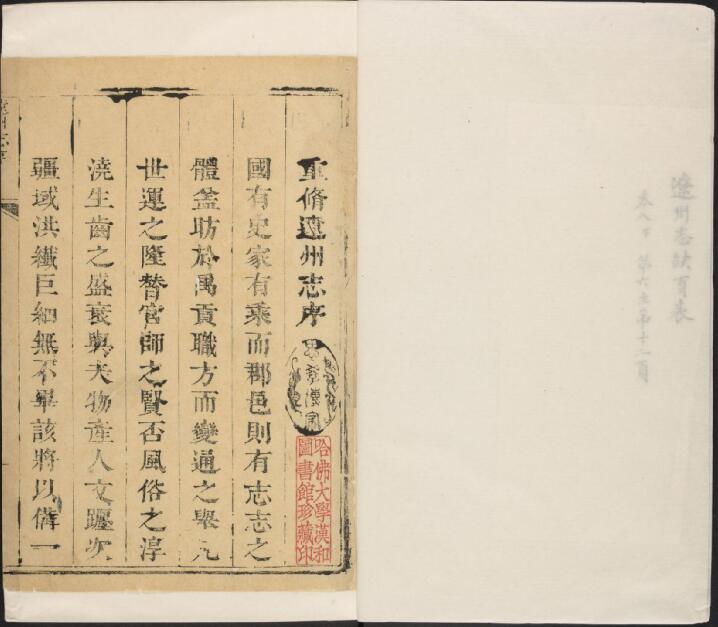 遼州志缺頁表
卷八下 第六至第十二頁
重脩遼州志序
哈佛大學漢和
圖書館珍藏印
國有史家有乘而郡邑則有志志之
體葢昉於禹貢職方而變通之舉凡
世運之隆替官師之賢否風俗之淳
澆生齒之盛衰與夫物產人文躔次
疆域洪纖巨細無不畢該將以偹一